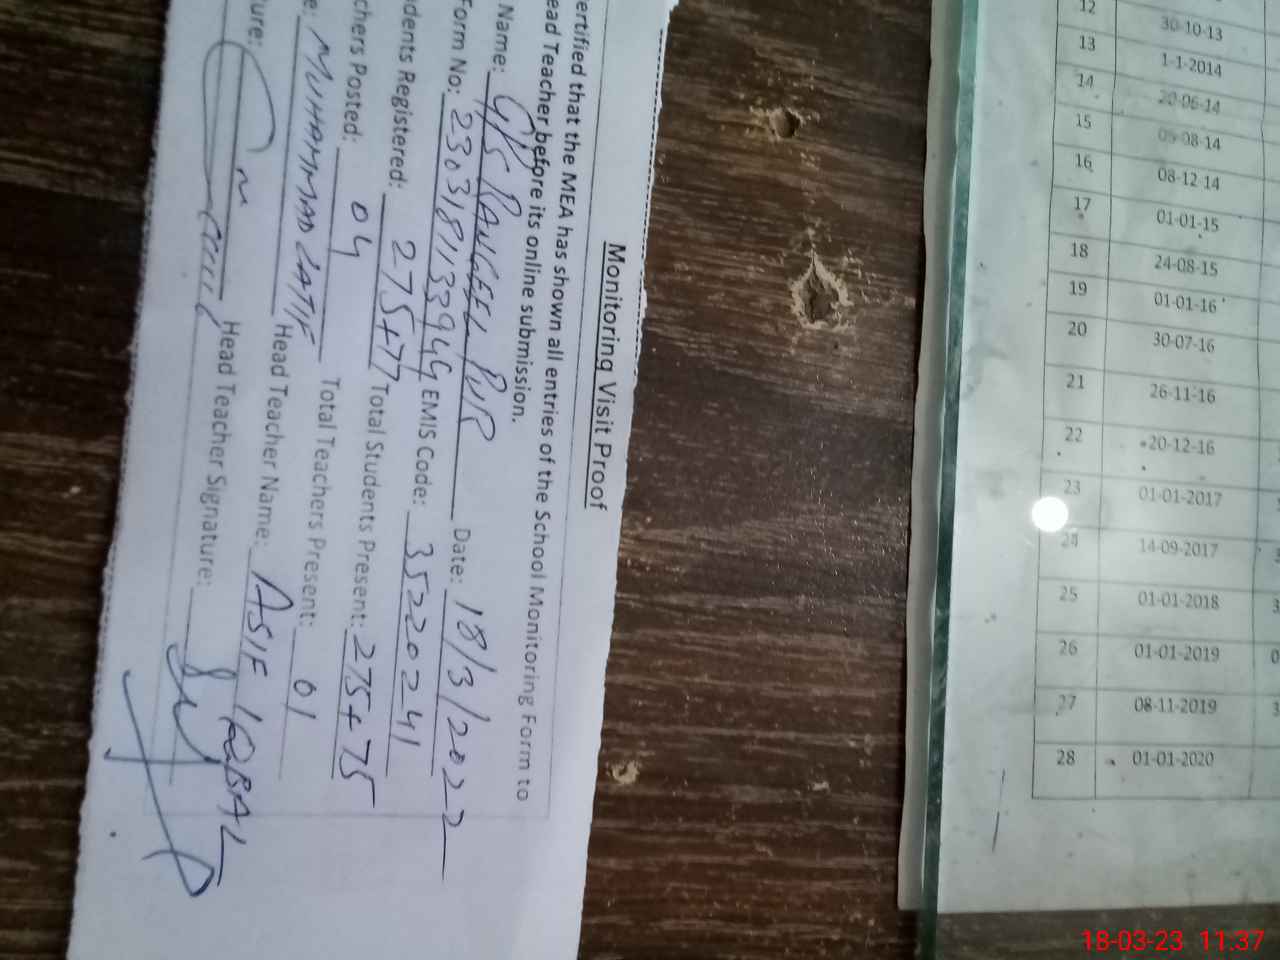 Monitoring Visit Proof
ertified that the MEA has shown all entries of the School Monitoring Form to
ead Teacher before its online submission.
Name: GPS RANGEEL PUR Date: 18/3/2022
Form No: 2303181133944 EMIS Code: 35220241
dents Registered: 275+77 Total Students Present: 275+75
chers Posted: 04 Total Teachers Present: 01
e: MUHAMMAD LATIF Head Teacher Name: ASIF IQBAL
ure: Head Teacher Signature:
12 30-10-13
13 1-1-2014
14 20-06-14
15 05-08-14
16 08-12-14
17 01-01-15
18 24-08-15
19 01-01-16
20 30-07-16
21 26-11-16
22 20-12-16
23 01-01-2017
24 14-09-2017 3
25 01-01-2018 3
26 01-01-2019 0
27 08-11-2019 3
28 01-01-2020
18-03-23 11:37